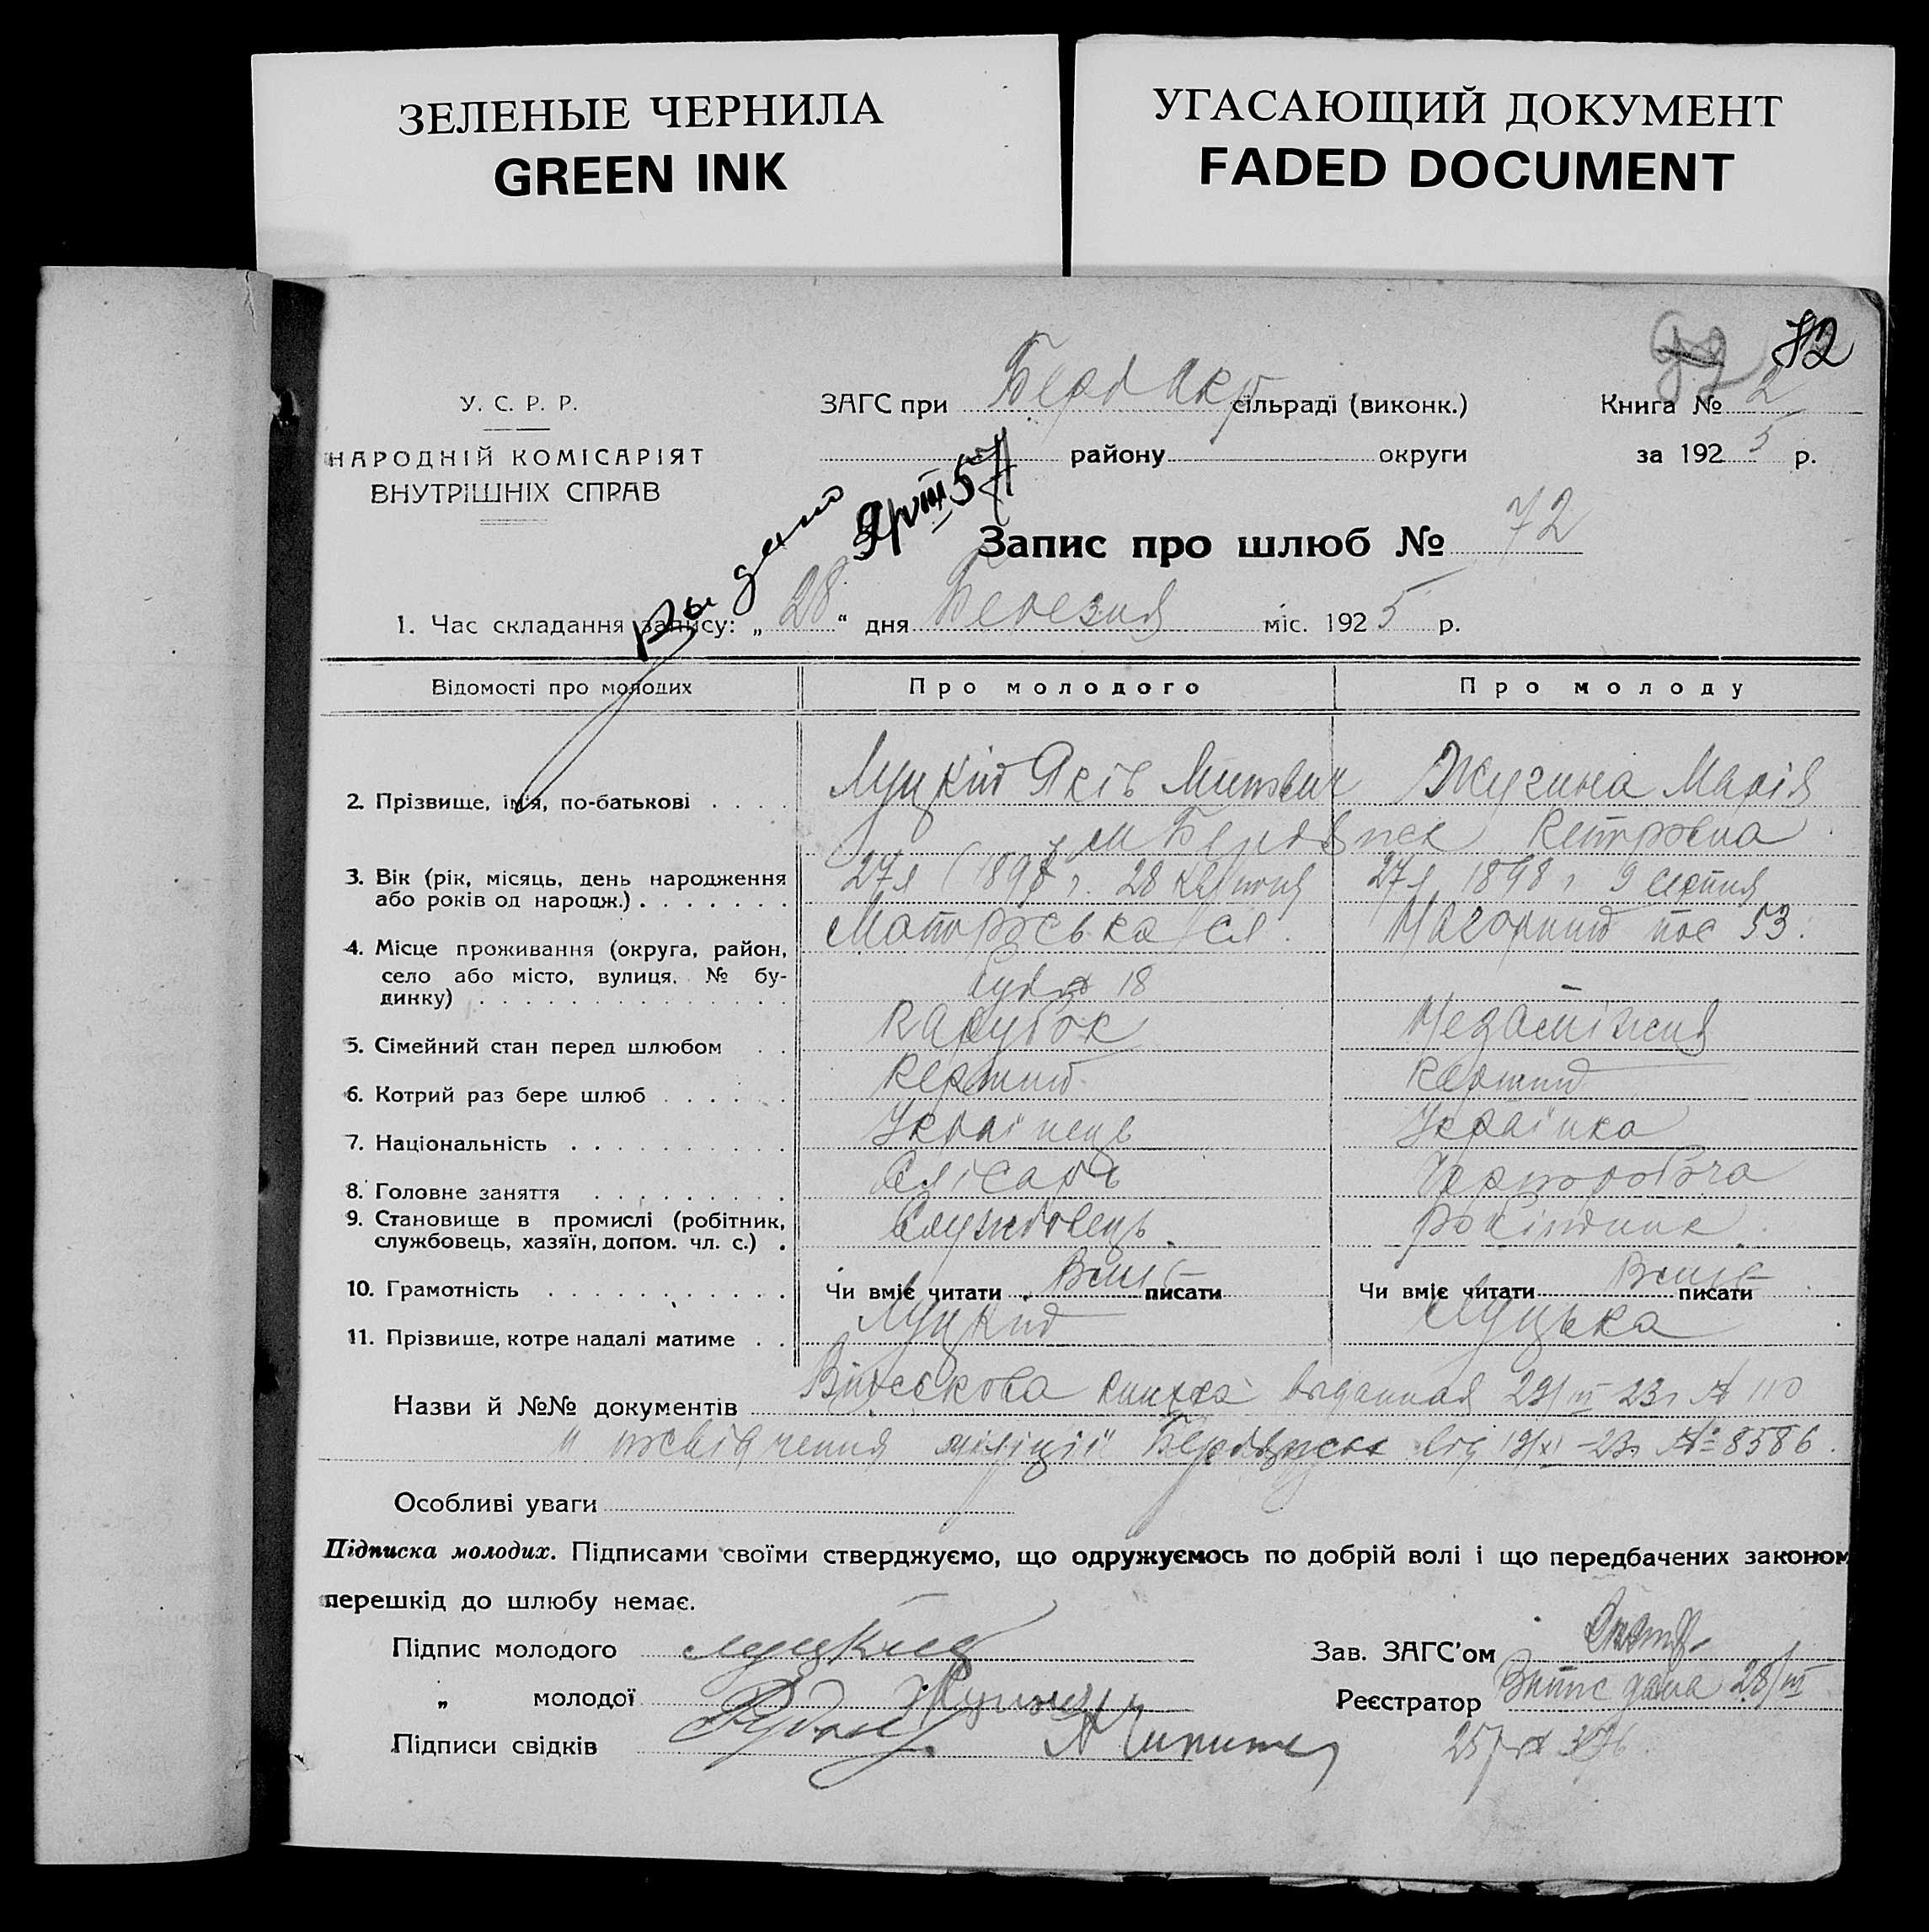 ЗЕЛЕНЫЕ ЧЕРНИЛА
GREEN INK
УГАСАЮЩИЙ ДОКУМЕНТ
FADED DOCUMENT
72
У. С. Р. Р.
НАРОДНІЙ КОМІСАРІЯТ
ВНУТРІШНІХ СПРАВ
ЗАГС при Берд Окр сільраді (виконк.)
Книга № 2
району округи
за 1925 р.
Запис про шлюб № 72
1. Час складання запису: „28“ дня Березня міс. 1925 р.
Відомості про молодих
Про молодого
Про молоду
2. Прізвище, ім'я, по-батькові . . . .
Луцкий Яків
Марія
Петровна
3. Вік (рік, місяць, день народження
або років од народж.) . . . . . . .
27 л 1898 г. 28
27 л 1898 г 9 серпня
4. Місце проживання (округа, район,
село або місто, вулиця. № бу-
динку) . . . . . . . . . . . . . .
Матроська сл.
18
Нагорний пос 53.
5. Сімейний стан перед шлюбом . .
Парубок
Незаміжня
6. Котрий раз бере шлюб . . . . . .
Перший
Перший
7. Національність . . . . . . . . . .
Українець
Українка
8. Головне заняття . . . . . . . . .
Слісарь
Чорноробча
9. Становище в промислі (робітник,
службовець, хазяїн, допом. чл. с.) .
Службовець.
Робітник.
10. Грамотність . . . . . . . . . . .
Чи вміє читати Вміє писати
Чи вміє читати Вміє писати
11. Прізвище, котре надалі матиме . .
Луцкий
Луцька
Назви й №№ документів Військова книжка выданная 23г № 110
міліції № 8586.
Особливі уваги
Підписка молодих. Підписами своїми стверджуємо, що одружуємось по добрій волі і що передбачених законом
перешкід до шлюбу немає.
Підпис молодого Луцкий
Зав. ЗАГС'ом
„ молодої
Реєстратор Випис дана 28/III
Підписи свідків